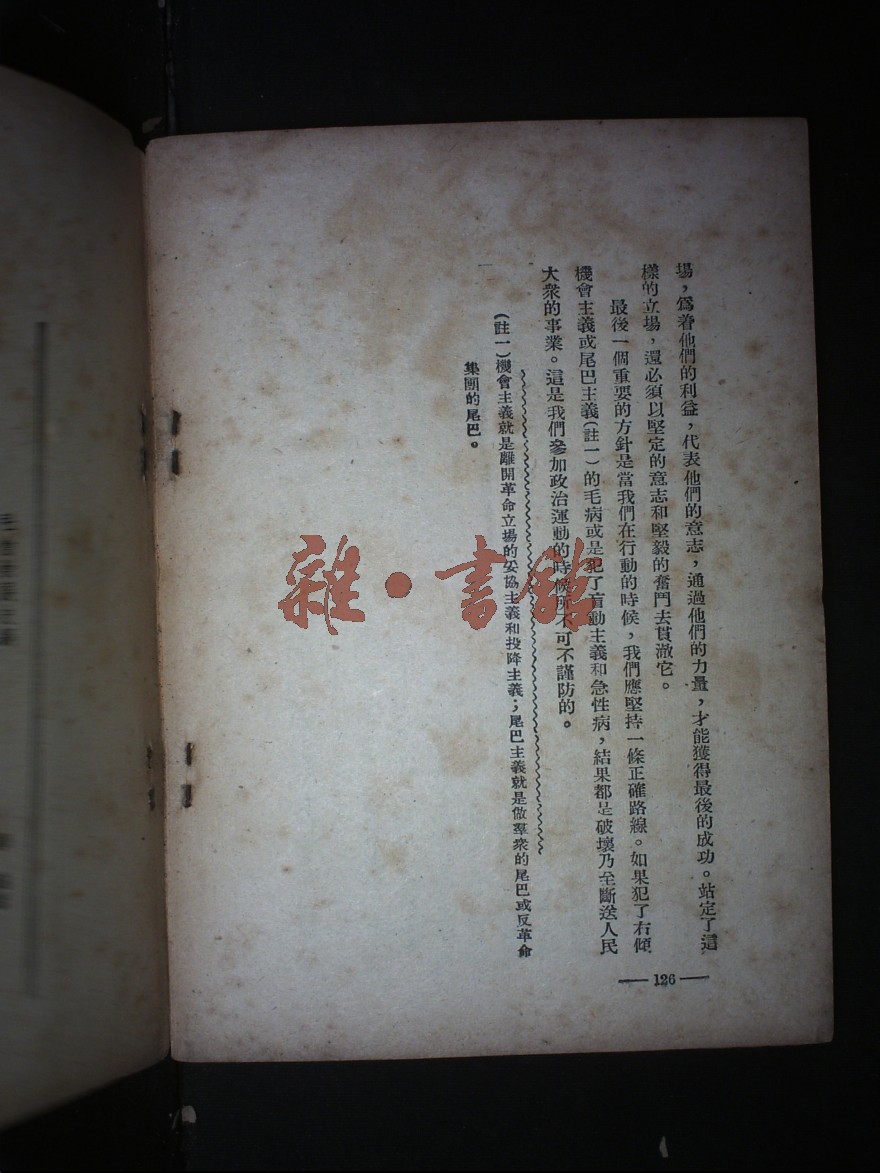 場，爲着他們的利益，代表他們的意志，通過他們的力量，才能獲得最後的成功。站定了這
樣的立場，還必須以堅定的意志和堅毅的奮鬥去貫澈它。
最後一個重要的方針是當我們在行動的時候，我們應堅持一條正確路線。如果犯了右傾
機會主義或尾巴主義（註一）的毛病或是犯了盲動主義和急性病，結果都是破壞乃至斷送人民
大衆的事業。這是我們參加政治運動的時候所不可不謹防的。
（註一）機會主義就是離開革命立場的妥協主義和投降主義；尾巴主義就是做羣衆的尾巴或反革命
集團的尾巴。
— 126 —
雜·書館